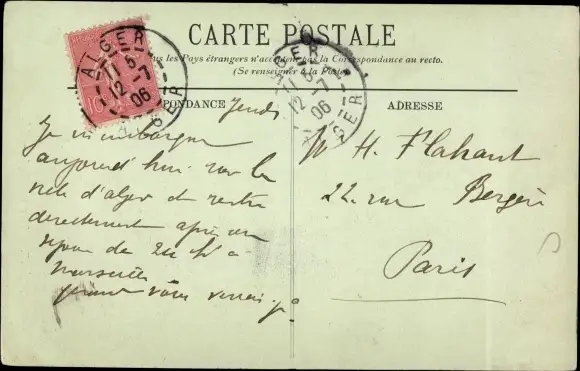 CARTE POSTALE
les Pays étrangers n'acceptent pas la Correspondance au recto.
(Se renseigner à la Poste)
PONDANCE
ADRESSE
ALGER
11 5
12 -7
06
ALGER
ALGER
11 5
12 -7
06
ALGER
10
Jeudi
Je m'embarque
aujourd'hui sur la
ville d'alger et rentre
directement après un
séjour de 24 h à
marseille
M H. Flahaut
22. rue Bergère
Paris